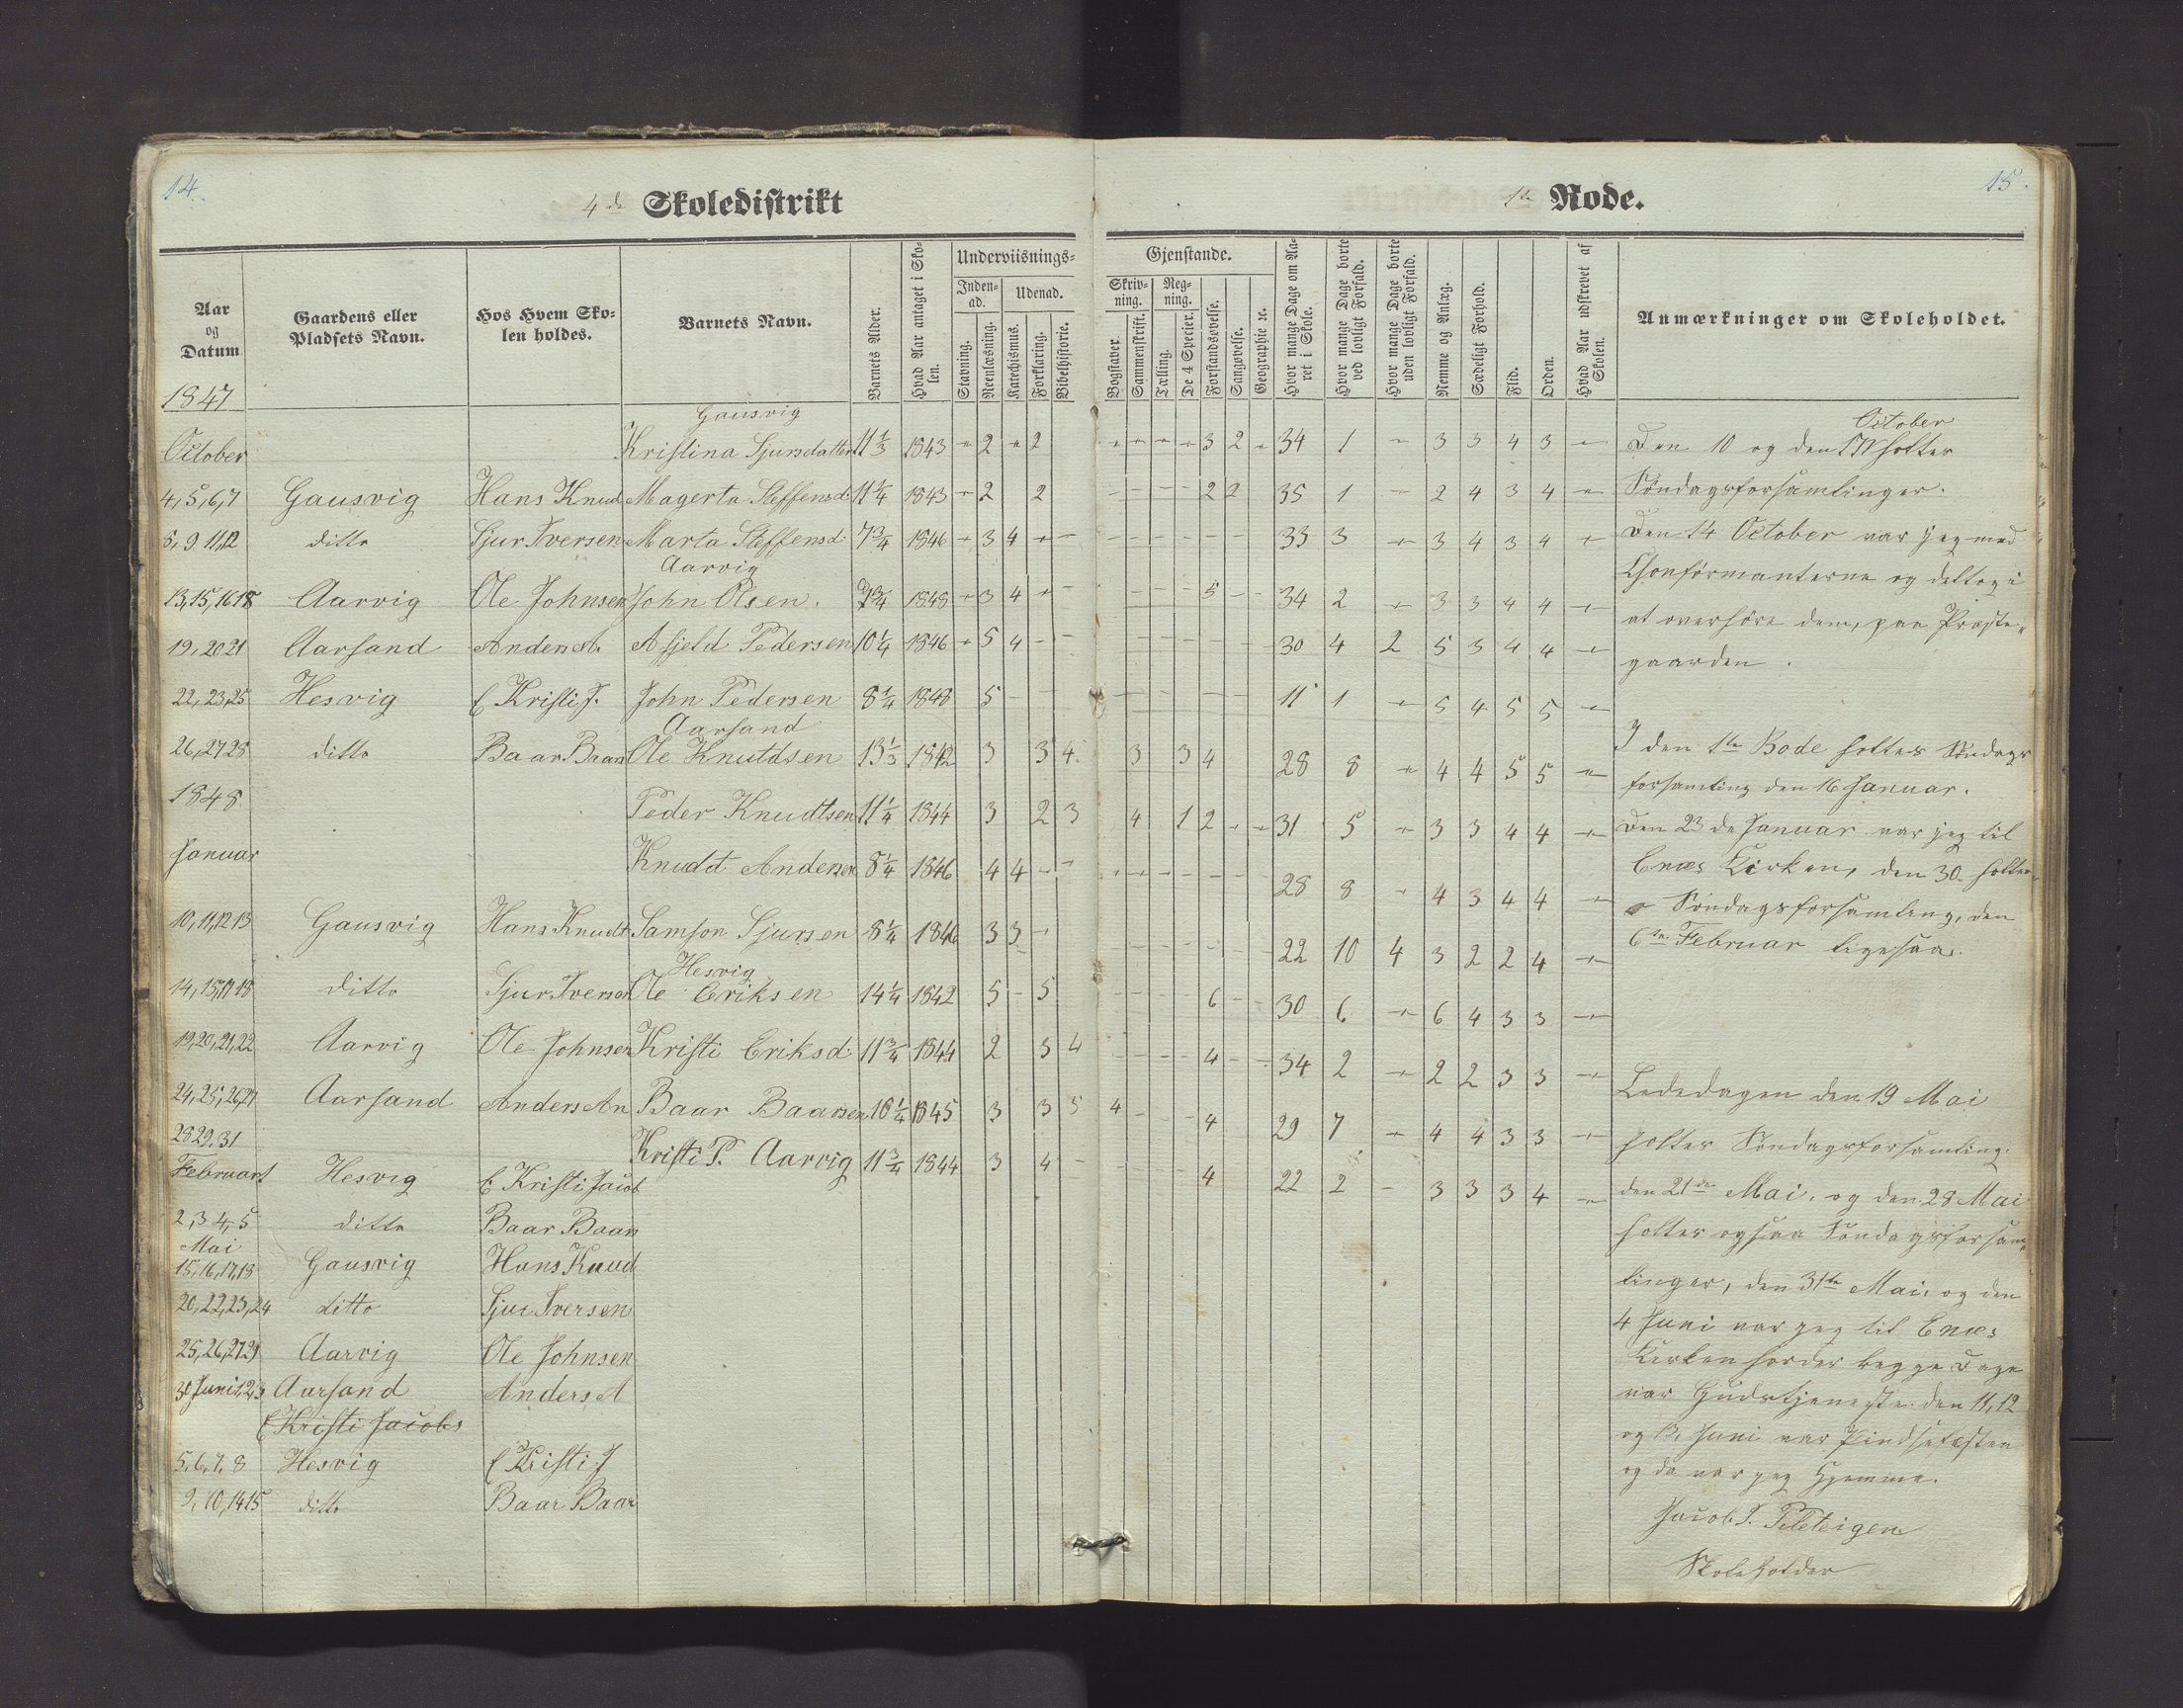 14.
4de Skoledistrikt
Aar og Datum
Gaardens eller Pladsets Navn.
Hos Hvem Skolen holdes.
Barnets Navn.
Barnets Alder.
Hvad Aar antaget i Skolen.
Underviisnings=
Inden-ad.
Udenad.
Stavning.
Reenlæsning.
Katechismus.
Forklaring.
Bibelhistorie.
1847
Gausvig
October Kristina Sjursdatter 11 1/3 1843 - 2 - 2
4, 5, 6, 7 Gausvig Hans Knud Magerta Steffensd: 11 1/4 1843 - 2 2
8, 9 11, 12 ditto Sjur Iversen Marta Steffensd: 7 3/4 1846 - 3 4 - -
Aarvig
13, 15, 16 18 Aarvig Ole Johnsen John Olsen. 9 3/4 1848 - 3 4 - -
19, 20 21 Aarsand Anders A. Asjeld Pedersen 10 1/4 1846 - 5 4 - -
22, 23, 25 Hesvig E Kristi J. John Pedersen 8 1/4 1848 5 - - -
Aarsand
26, 27 28 ditto Baar Baars Ole Knutdsen 13 1/3 1842 3 3 4
1848 Peder Knudtsen 11 1/4 1844 3 2 3
Januar Knudt Andersen 8 1/4 1846 4 4 - -
10, 11, 12 13 Gausvig Hans Knudt Samson Sjursen 8 1/4 1846 3 3 -
Hesvig
14, 15, 17 18 ditto Sjur Iversen Ole Eriksen 14 1/4 1842 5 - 5
19, 20, 21, 22 Aarvig Ole Johnsen Kristi Eriksd: 11 3/4 1844 2 3 4
24, 25, 26, 27 Aarsand Anders An Baar Baarsen 10 1/4 1845 3 3 5
28 29. 31 Kristi P. Aarvig 11 3/4 1844 3 4 -
Februar 1 Hesvig E Kristi Jacob
2, 3 4, 5 ditto Baar Baars
Mai
15, 16, 17, 18 Gausvig Hans Knud
20, 22, 23, 24 ditto Sjur Iversen
25, 26, 27 29 Aarvig Ole Johnsen
30 Juni 1, 2, 3 Aarsand Anders A
E Kristi Jacobs
5, 6, 7, 8 Hesvig E Kristi J
9, 10, 14 15 ditto Baar Baar
15.
1te Rode.
Gjenstande.
Skriv-ning.
Reg-ning.
Bogstaver.
Sammenskrift.
Tælling.
De 4 Specier.
Forstandsøvelse.
Sangøvelse.
Geographie 2c.
Hvor mange Dage om Aaret i Skole.
Hvor mange Dage borte ved lovligt Forfald.
Hvor mange Dage borte uden lovligt Forfald.
Nemme og Anlæg.
Sædeligt Forhold.
Flid.
Orden.
Hvad Aar udskrevet af Skolen.
Anmærkninger om Skoleholdet.
- - - - 3 2 - 34 1 - 3 3 4 3 -
- - - - 2 2 35 1 - 2 4 3 4 -
- - - - - - 33 3 - 3 4 3 4 -
- - - 5 - - 34 2 - 3 3 4 4 -
- - - - - - 30 4 2 5 3 4 4 -
- - - - - 11 1 - 5 4 5 5 -
3 3 4 28 8 - 4 4 5 5 -
4 1 2 - - 31 5 - 3 3 4 4 -
- - - - - - 28 8 - 4 3 4 4 -
- - - - - - 22 10 4 3 2 2 4 -
- - - - 6 - - 30 6 - 6 4 3 3 -
- - - - 4 - - 34 2 - 2 2 3 3 -
4 - - - 4 29 7 - 4 4 3 3 -
- - - - 4 22 2 - 3 3 3 4 -
October
Den 10 og den 17 holtes
Söndagsforsamlinger.
Den 14 October var jeg med
Chonförmanterne og deltog i
at overhöre dem, paa Præste-
gaarden.
I den 1te Rode holtes Söndags
forsamling den 16 Januar.
Den 23de Januar var jeg til
Enæs Kirken, den 30 holtes
Söndagsforsamling, den
6te Februar ligesaa.
Bededagen den 19 Mai
holtes Söndagsforsamling.
den 21de Mai. og den 28 Mai
holtes ogsaa Söndagsforsam-
linger, den 31te Mai. og den
4 Juni var jeg til Enæs
Kirken hvor der begge Dage
var Gudstjeneste. den 11, 12
og 13, Juni var Pindsefesten
og da var jeg Hjemme.
Jacob J. Teleteigen
Skoleholder